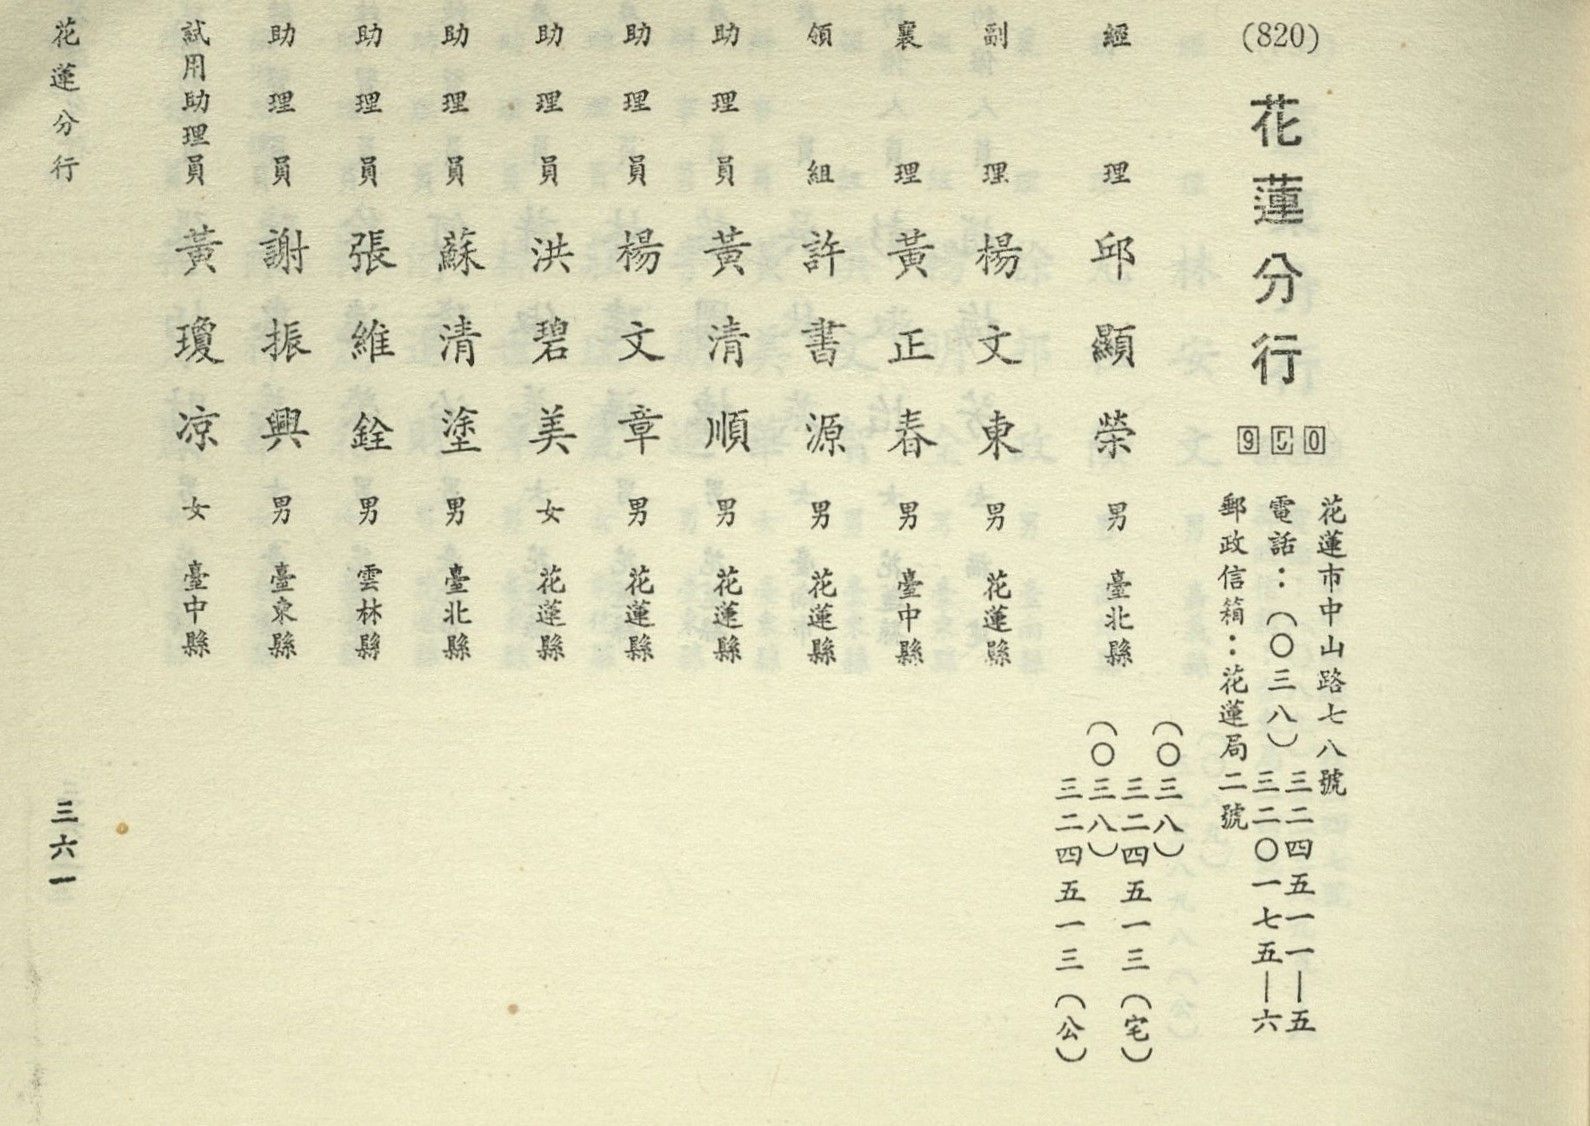 (820)
花蓮分行 970
花蓮市中山路七八號
電話：(〇三八)三二四五一一—五
三二〇一七五—六
郵政信箱：花蓮局二號
經理 邱顯榮 男 臺北縣
(〇三八)三二四五一三(宅)
(〇三八)三二四五一三(公)
副理 楊文東 男 花蓮縣
襄理 黃正春 男 臺中縣
領組 許書源 男 花蓮縣
助理員 黃清順 男 花蓮縣
助理員 楊文章 男 花蓮縣
助理員 洪碧美 女 花蓮縣
助理員 蘇清塗 男 臺北縣
助理員 張維銓 男 雲林縣
助理員 謝振興 男 臺東縣
試用助理員 黃瓊凉 女 臺中縣
花蓮分行
三六一